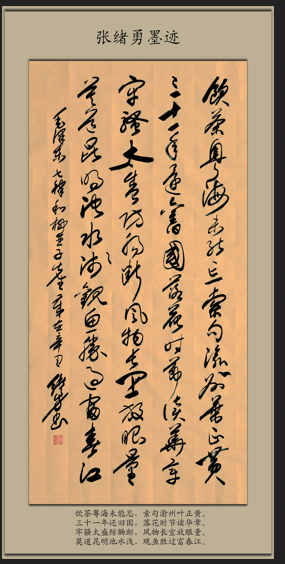 张绪勇墨迹
飲茶粤海未能忘索句渝州葉正黄
三十一年還舊國落花时节读華章
牢骚太盛防肠断風物长宜放眼量
莫道昆明池水浅觀魚勝过富春江
毛泽东七律和柳亚子先生
饮茶粤海未能忘，索句渝州叶正黄。
三十一年还旧国，落花时节读华章。
牢骚太盛防肠断，风物长宜放眼量。
莫道昆明池水浅，观鱼胜过富春江。